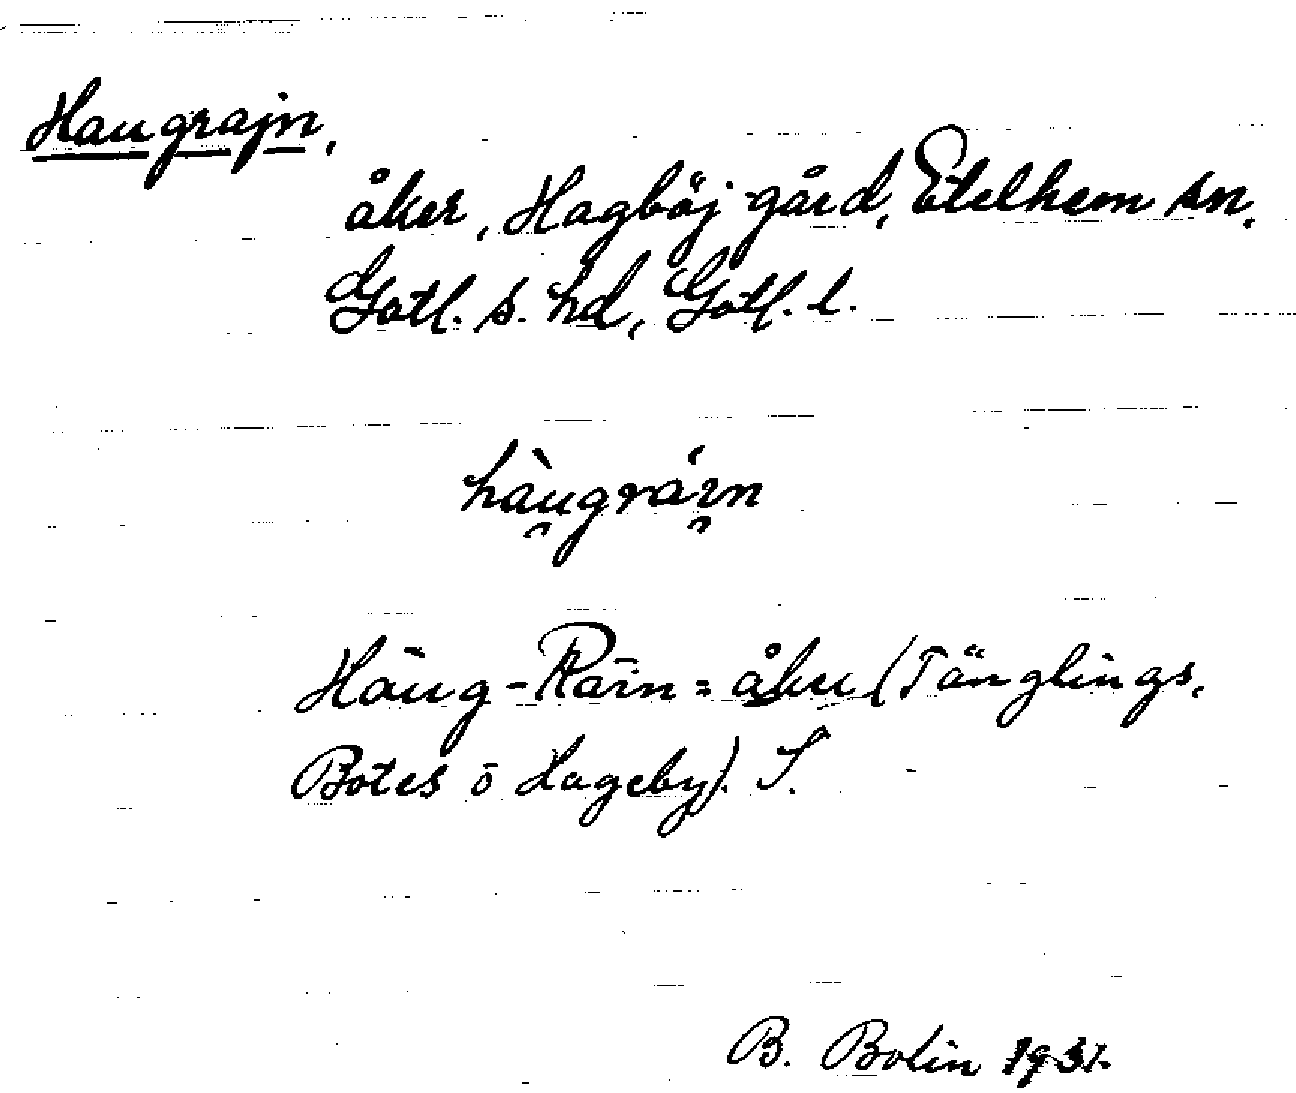 Haugrajn,
åker, Hagböj gård, Etelhem sn,
Gotl. s. hd, Gotl. l.
hàu̯grái̯n
Häug-Räin = åker (Tänglings,
Botes o Hageby). S.
B. Bolin 1931.